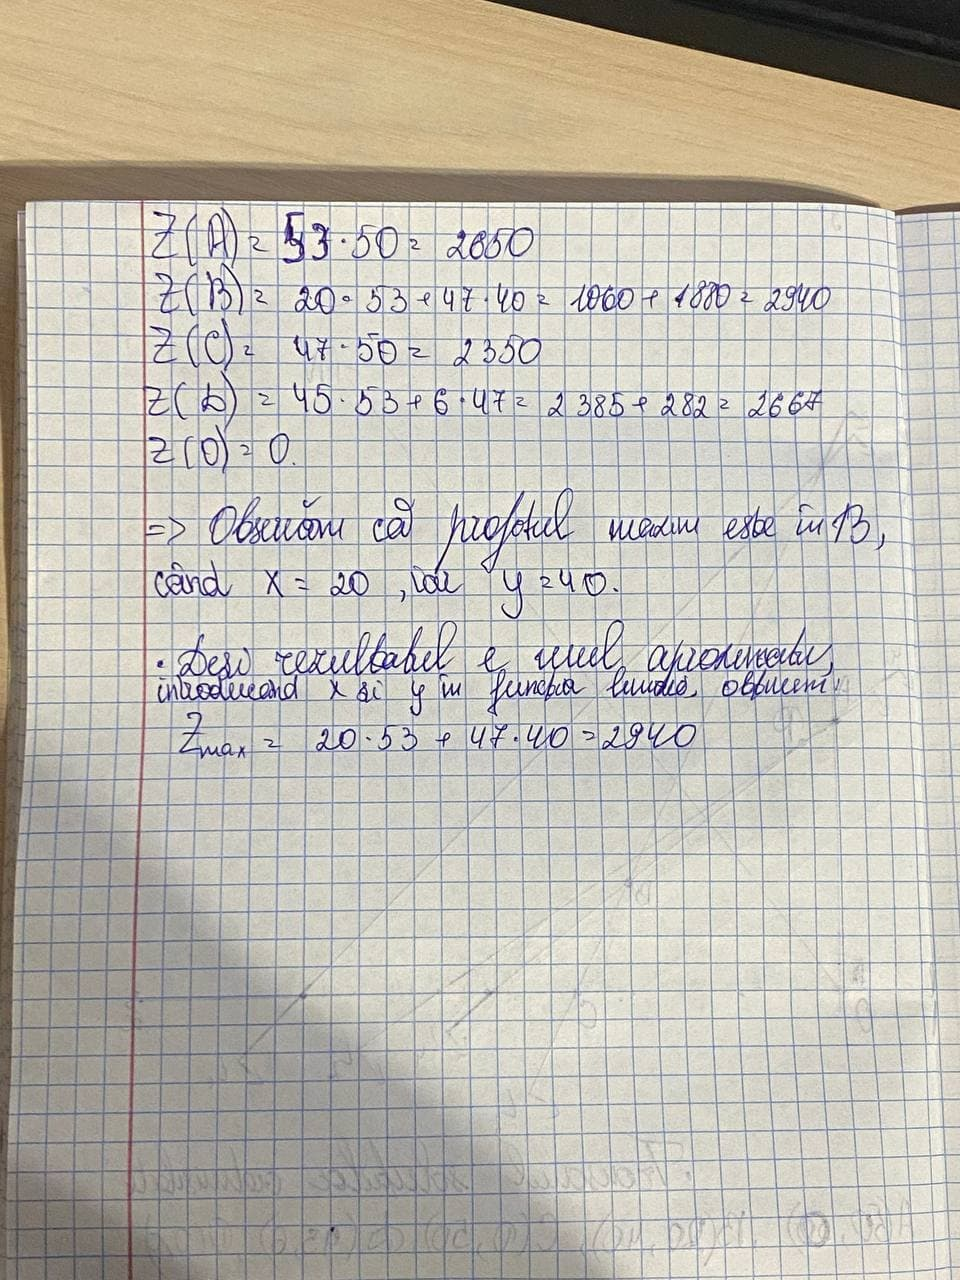 Z(A) = 53·50 = 2650
Z(B) = 20·53+47·40 = 1060+1880 = 2940
Z(C) = 47·50 = 2350
Z(D) = 45·53+6·47 = 2385+282 = 2667
Z(O) = 0.
=> Observăm că profitul maxim este în B,
când x = 20, iar y = 40.
· Deși rezultatul e unul aproximativ,
introducând x și y în funcția liniară, obținem:
Zmax = 20·53 + 47·40 = 2940